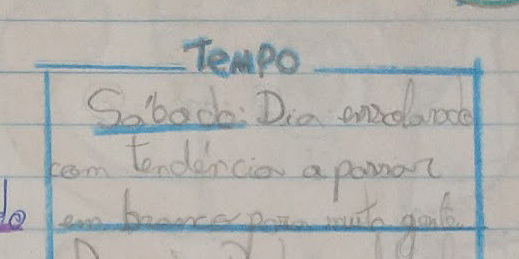 TEMPO
Sábado: Dia ensolarado
com tendência a passar
em branco para muita gente.
do